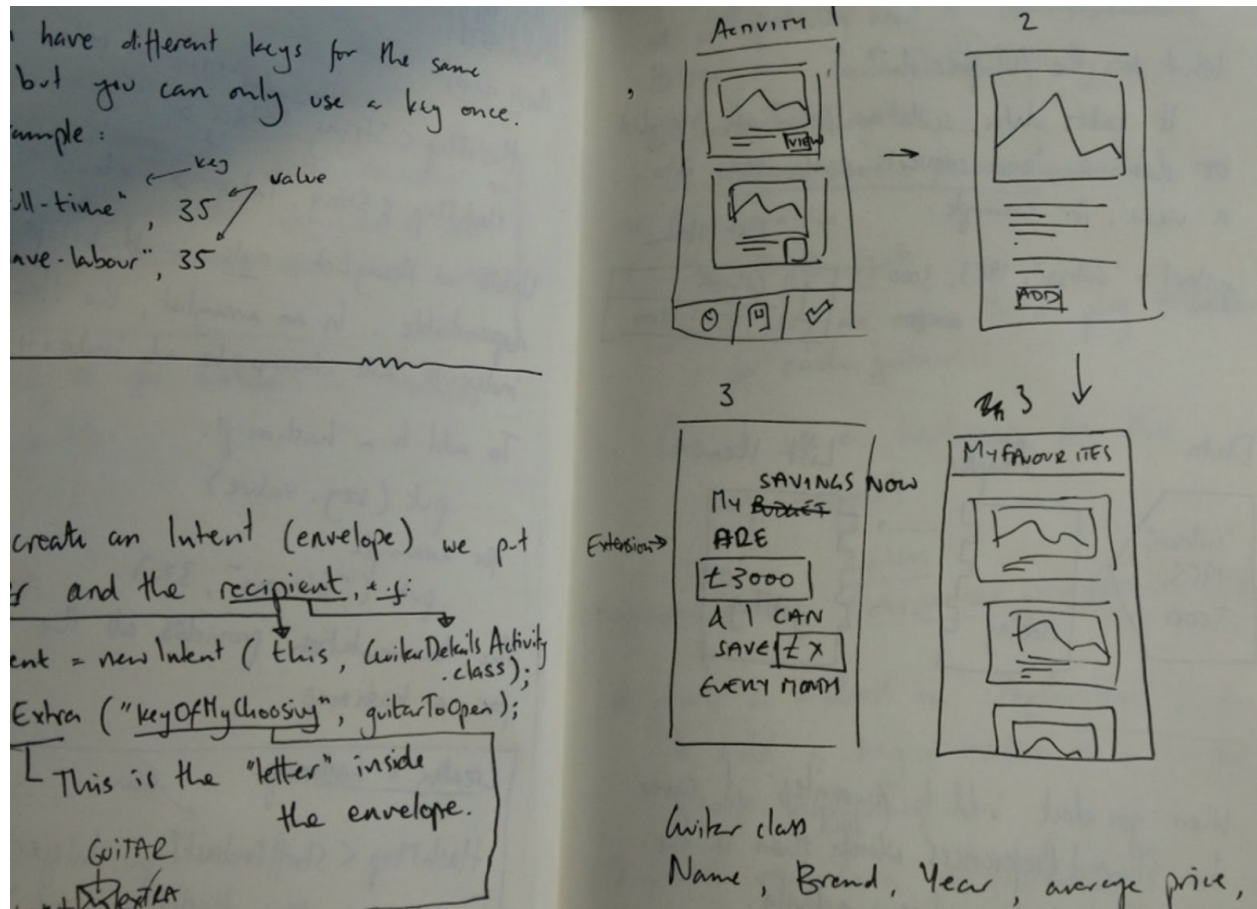 have different keys for the same
but you can only use a key once.
ample :
key
value
ll-time", 35
ave-labour", 35
create an Intent (envelope) we put
and the recipient, e.g:
ent = new Intent ( this, GuitarDetailsActivity
.class);
Extra ("keyOfMyChoosing", guitarToOpen);
This is the "letter" inside
the envelope.
GUITAR
EXTRA
ACTIVITY 1
VIEW
2
ADD
3
SAVINGS NOW
MY BUDGET
ARE
£3000
& I CAN
SAVE £X
EVERY MONTH
Extension
3
MY FAVOURITES
Guitar class
Name, Brand, Year, average price,